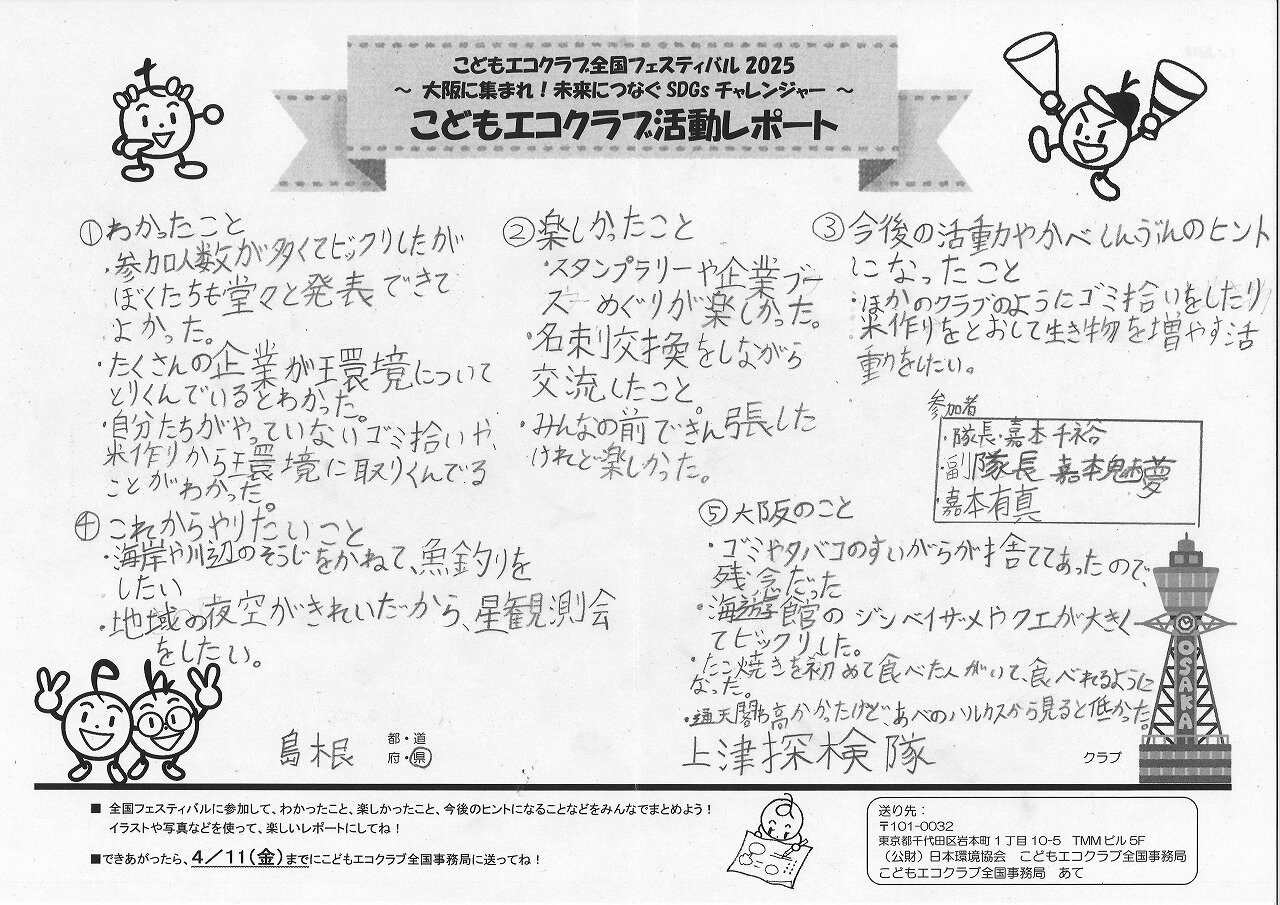 こどもエコクラブ全国フェスティバル 2025
～ 大阪に集まれ！未来につなぐ SDGs チャレンジャー ～
こどもエコクラブ活動レポート
①わかったこと
・参加人数が多くてビックリしたが
ぼくたちも堂々と発表できて
よかった。
・たくさんの企業が環境について
とりくんでいるとわかった。
・自分たちがやっていないゴミ拾いや、
米作りから環境に取りくんでる
ことがわかった。
②楽しかったこと
・スタンプラリーや企業ブー
スーめぐりが楽しかった。
・名刺交換をしながら
交流したこと。
・みんなの前できん張した
けれど楽しかった。
③今後の活動やかべしんぶんのヒント
になったこと
・ほかのクラブのようにゴミ拾いをしたり
米作りをとおして生き物を増やす活
動をしたい。
参加者
・隊長・嘉本千裕
・副隊長 嘉本魁夢
・嘉本有真
④これからやりたいこと
・海岸や川辺のそうじをかねて、魚釣りを
したい
・地域の夜空がきれいだから、星観測会
をしたい。
⑤大阪のこと
・ゴミやタバコのすいがらが捨ててあったので、
残念だった
・海遊館のジンベイザメやクエが大きく
てビックリした。
・たこ焼きを初めて食べた人がいて、食べれるように
なった。
・通天閣も高かったけど、あべのハルカスから見ると低かった。
OSAKA
島根 都・道
府・県
上津探検隊 クラブ
■ 全国フェスティバルに参加して、わかったこと、楽しかったこと、今後のヒントになることなどをみんなでまとめよう！
イラストや写真などを使って、楽しいレポートにしてね！
■できあがったら、4／11(金)までにこどもエコクラブ全国事務局に送ってね！
送り先：
〒101-0032
東京都千代田区岩本町１丁目 10-5 TMM ビル 5F
（公財）日本環境協会 こどもエコクラブ全国事務局
こどもエコクラブ全国事務局 あて